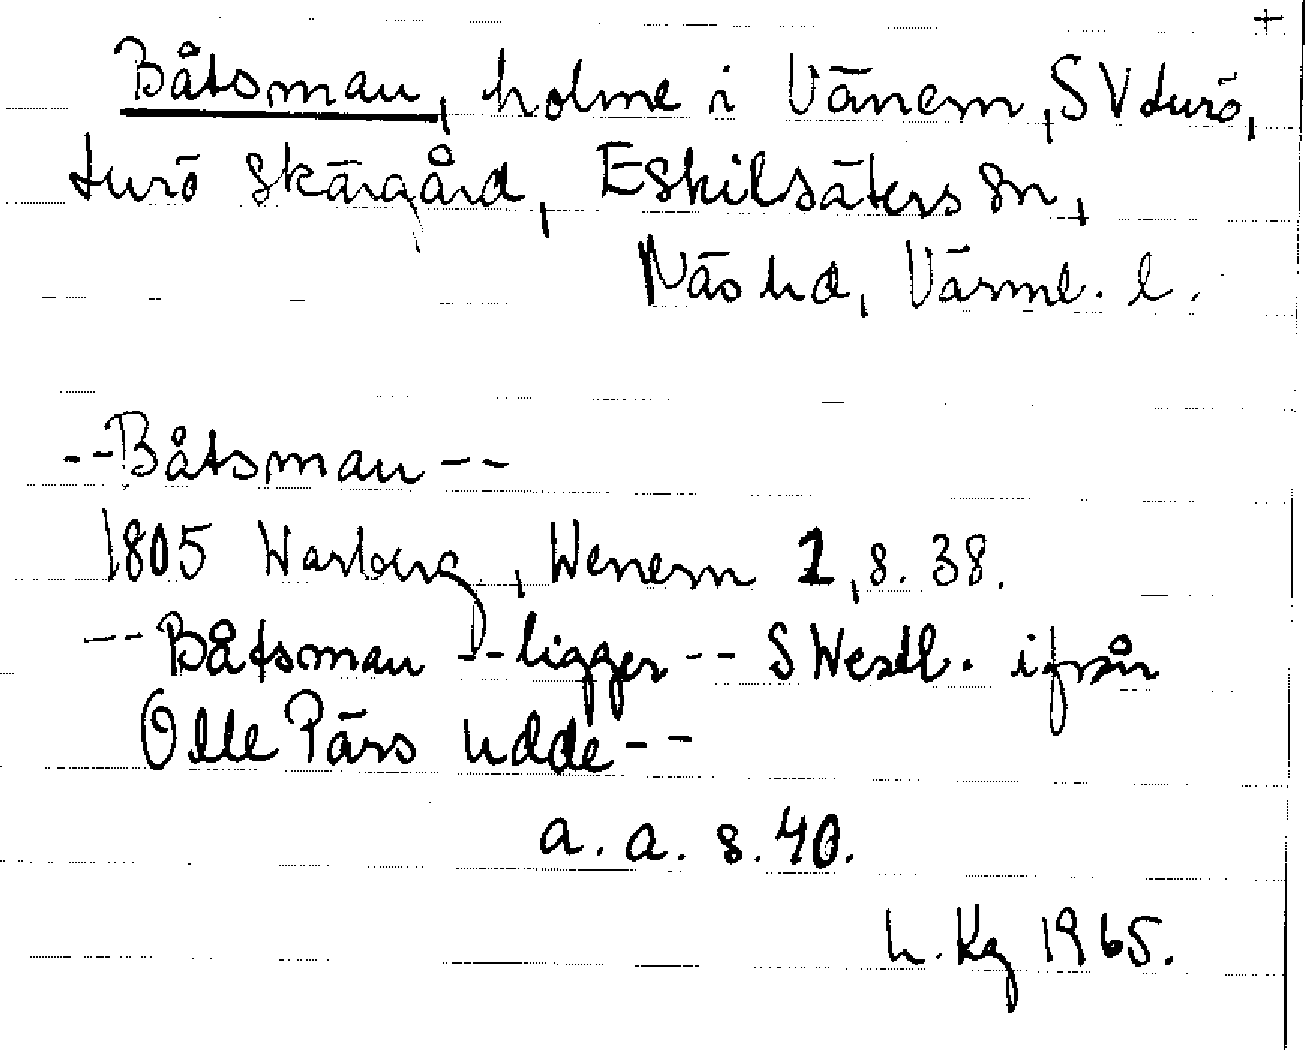 +
Båtsman, holme i Vänern, SV Lurö,
Lurö skärgård, Eskilsäters sn,
Näs hd, Värml. l.
--Båtsman--
1805 Warberg, Wenern 1, s. 38.
--Båtsman--ligger--S Westl. ifrån
Olle Pärs udde--
a. a. s. 40.
L. Kg 1965.